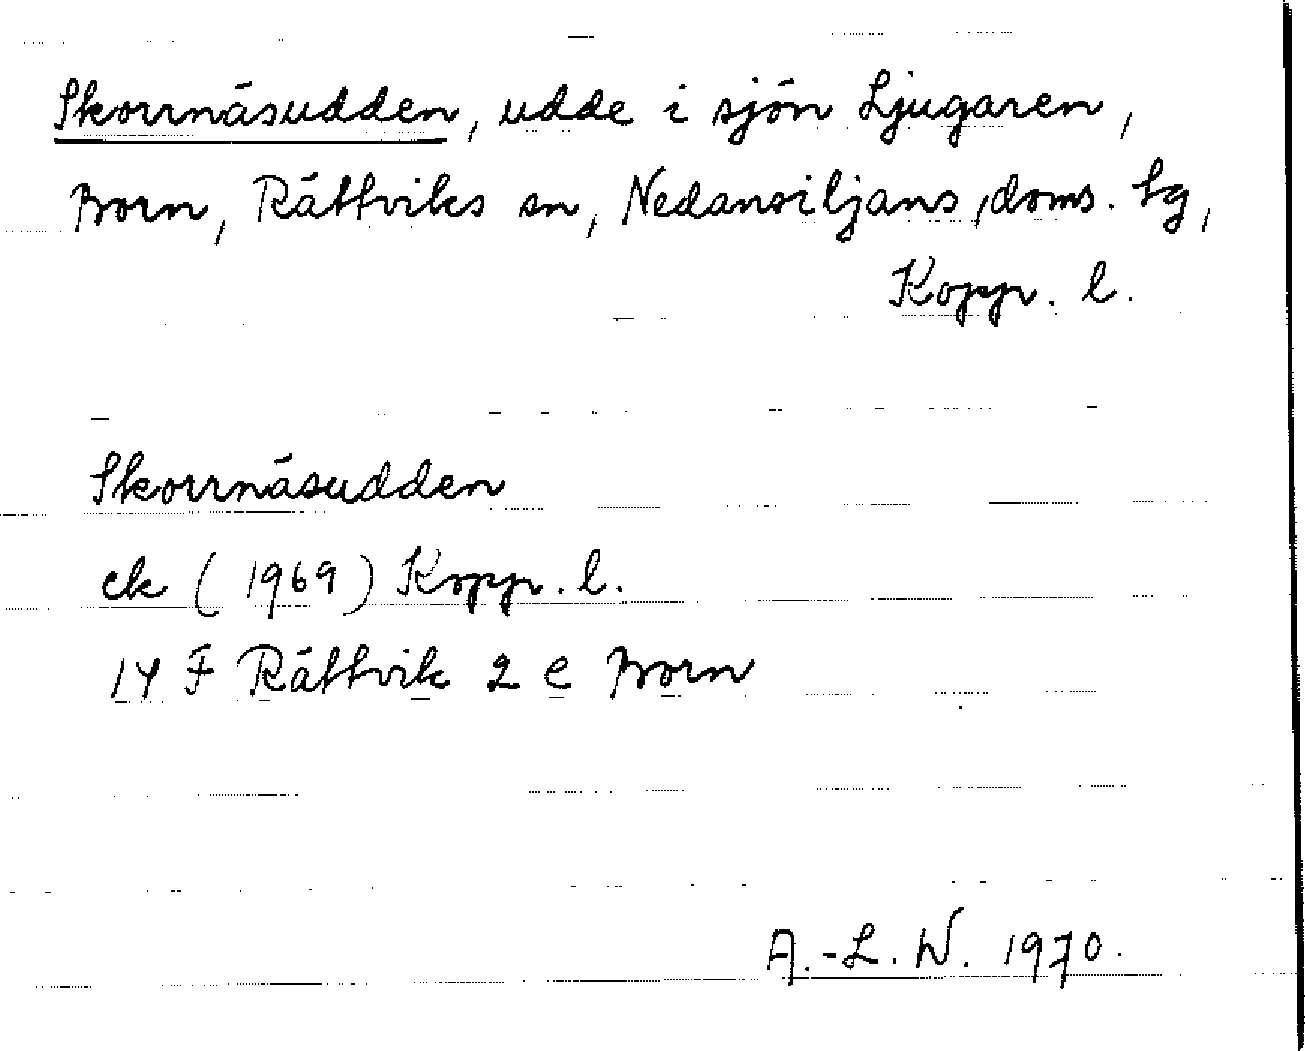 Skorrnäsudden, udde i sjön Ljugaren,
Born, Rättviks sn, Nedansiljans doms. lg,
Kopp. l.
Skorrnäsudden
ek (1969) Kopp. l.
14 F Rättvik 2 e Born
A.-L. W. 1970.